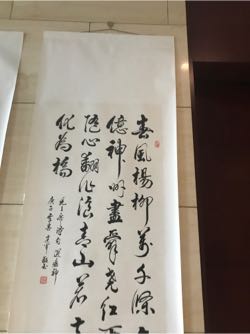 春風楊柳萬千條六
億神州盡舜堯紅雨
隨心翻作浪青山着
化為橋
毛主席詩句送瘟神
庚子